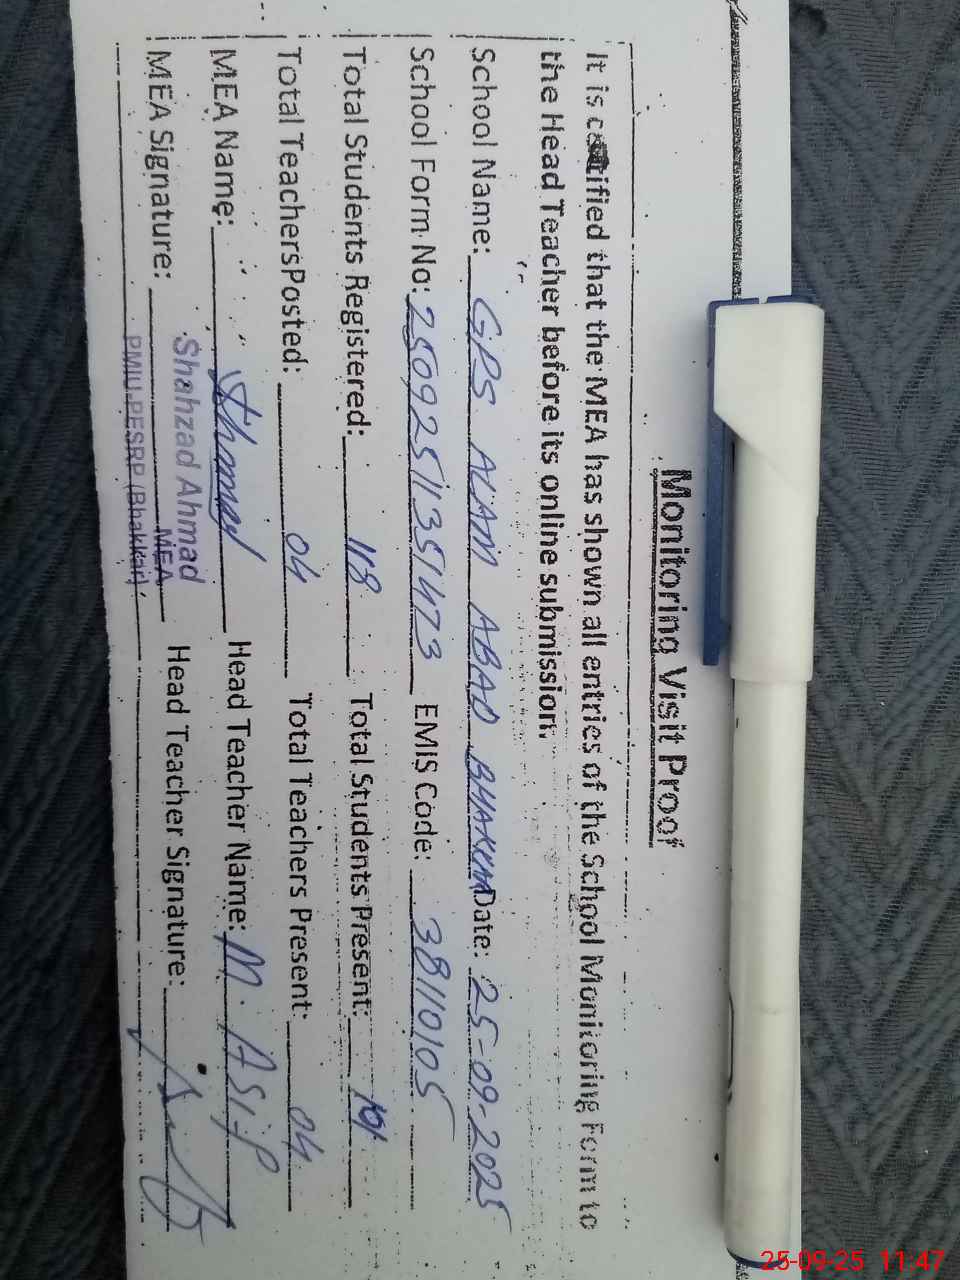 Monitoring Visit Proof
It is certified that the MEA has shown all entries of the School Monitoring Form to
the Head Teacher before its online submission.
School Name: GPS ALAM ABAD BHAKKAR Date: 25-09-2025
School Form No: 25092511351473 EMIS Code: 38110105
Total Students Registered: 118 Total Students Present: 101
Total TeachersPosted: 04 Total Teachers Present: 04
MEA Name: Head Teacher Name: M. Asif
MEA Signature: Head Teacher Signature:
Shahzad Ahmad
MEA
PMIU-PESRP (Bhakkar)
25-09-25 11:47